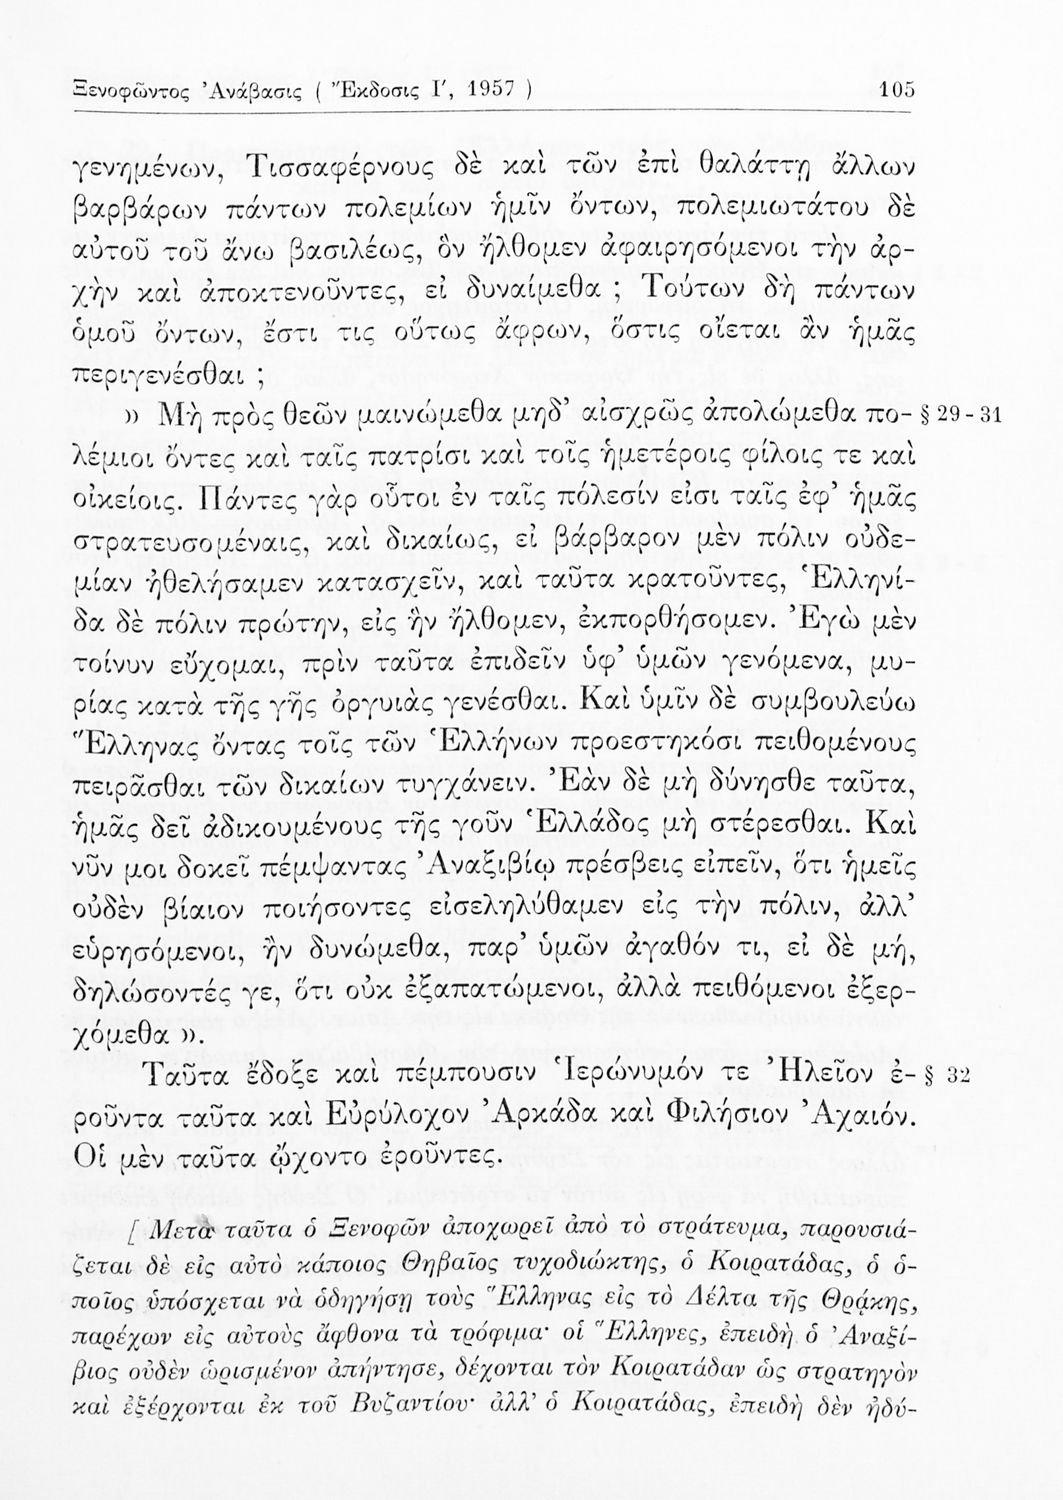 Ξενοφῶντος Ἀνάβασις ( Ἔκδοσις Ι′, 1957 ) 105
γενημένων, Τισσαφέρνους δὲ καὶ τῶν ἐπὶ θαλάττῃ ἄλλων
βαρβάρων πάντων πολεμίων ἡμῖν ὄντων, πολεμιωτάτου δὲ
αὐτοῦ τοῦ ἄνω βασιλέως, ὃν ἤλθομεν ἀφαιρησόμενοι τὴν ἀρ-
χὴν καὶ ἀποκτενοῦντες, εἰ δυναίμεθα ; Τούτων δὴ πάντων
ὁμοῦ ὄντων, ἔστι τις οὕτως ἄφρων, ὅστις οἴεται ἂν ἡμᾶς
περιγενέσθαι ;
» Μὴ πρὸς θεῶν μαινώμεθα μηδ’ αἰσχρῶς ἀπολώμεθα πο- § 29 - 31
λέμιοι ὄντες καὶ ταῖς πατρίσι καὶ τοῖς ἡμετέροις φίλοις τε καὶ
οἰκείοις. Πάντες γὰρ οὗτοι ἐν ταῖς πόλεσίν εἰσι ταῖς ἐφ’ ἡμᾶς
στρατευσομέναις, καὶ δικαίως, εἰ βάρβαρον μὲν πόλιν οὐδε-
μίαν ἠθελήσαμεν κατασχεῖν, καὶ ταῦτα κρατοῦντες, Ἑλληνί-
δα δὲ πόλιν πρώτην, εἰς ἣν ἤλθομεν, ἐκπορθήσομεν. Ἐγὼ μὲν
τοίνυν εὔχομαι, πρὶν ταῦτα ἐπιδεῖν ὑφ’ ὑμῶν γενόμενα, μυ-
ρίας κατὰ τῆς γῆς ὀργυιὰς γενέσθαι. Καὶ ὑμῖν δὲ συμβουλεύω
Ἕλληνας ὄντας τοῖς τῶν Ἑλλήνων προεστηκόσι πειθομένους
πειρᾶσθαι τῶν δικαίων τυγχάνειν. Ἐὰν δὲ μὴ δύνησθε ταῦτα,
ἡμᾶς δεῖ ἀδικουμένους τῆς γοῦν Ἑλλάδος μὴ στέρεσθαι. Καὶ
νῦν μοι δοκεῖ πέμψαντας Ἀναξιβίῳ πρέσβεις εἰπεῖν, ὅτι ἡμεῖς
οὐδὲν βίαιον ποιήσοντες εἰσεληλύθαμεν εἰς τὴν πόλιν, ἀλλ’
εὑρησόμενοι, ἢν δυνώμεθα, παρ’ ὑμῶν ἀγαθόν τι, εἰ δὲ μή,
δηλώσοντές γε, ὅτι οὐκ ἐξαπατώμενοι, ἀλλὰ πειθόμενοι ἐξερ-
χόμεθα ».
Ταῦτα ἔδοξε καὶ πέμπουσιν Ἱερώνυμόν τε Ἠλεῖον ἐ- § 32
ροῦντα ταῦτα καὶ Εὐρύλοχον Ἀρκάδα καὶ Φιλήσιον Ἀχαιόν.
Οἱ μὲν ταῦτα ᾤχοντο ἐροῦντες.
[ Μετὰ ταῦτα ὁ Ξενοφῶν ἀποχωρεῖ ἀπὸ τὸ στράτευμα, παρουσιά-
ζεται δὲ εἰς αὐτὸ κάποιος Θηβαῖος τυχοδιώκτης, ὁ Κοιρατάδας, ὁ ὁ-
ποῖος ὑπόσχεται νὰ ὁδηγήσῃ τοὺς Ἕλληνας εἰς τὸ Δέλτα τῆς Θρᾴκης,
παρέχων εἰς αὐτοὺς ἄφθονα τὰ τρόφιμα· οἱ Ἕλληνες, ἐπειδὴ ὁ Ἀναξί-
βιος οὐδὲν ὡρισμένον ἀπήντησε, δέχονται τὸν Κοιρατάδαν ὡς στρατηγὸν
καὶ ἐξέρχονται ἐκ τοῦ Βυζαντίου· ἀλλ’ ὁ Κοιρατάδας, ἐπειδὴ δὲν ἠδύ-